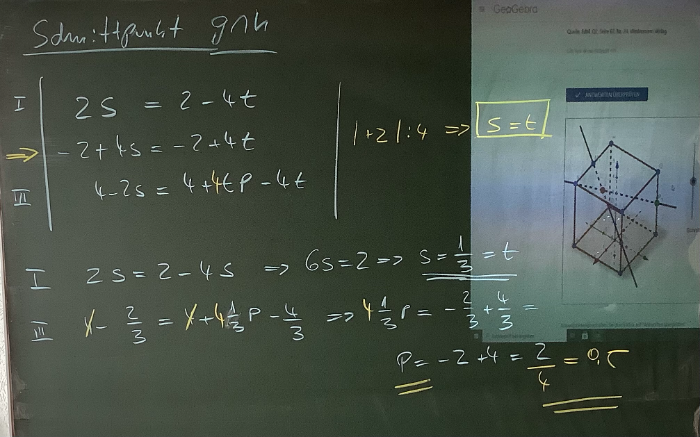 Schnittpunkt g∩h
I 2s = 2-4t
⇒ -2+4s = -2+4t |+2 |:4 ⇒ s=t
III 4-2s = 4+4tp-4t
I 2s = 2-4s ⇒ 6s=2 ⇒ s=1/3=t
III 4-2/3 = 4+4 1/3 p - 4/3 ⇒ 4 1/3 p = -2/3 + 4/3 =
p = -2+4 = 2/4 = 0,5
GeoGebra